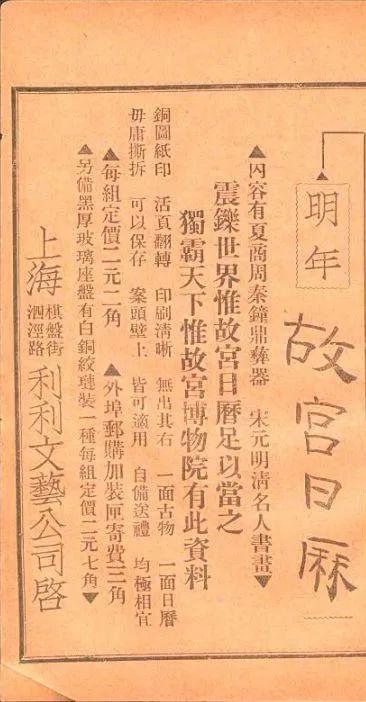 明年
故宮日厤
▲內容有夏商周秦鐘鼎彝器　宋元明清名人書畫▼
震鑠世界惟故宮日曆足以當之
獨霸天下惟故宮博物院有此資料
銅圖紙印　活頁翻轉　印刷清晰　無出其右　一面古物　一面日曆
毋庸撕拆　可以保存　案頭壁上　皆可適用　自備送禮　均極相宜
▲每組定價二元二角　▲外埠郵購加裝匣寄費三角
▲另備黑厚玻璃座盤有白銅絞璉裝一種每組定價二元七角▼
上海　棋盤街
泗涇路　利利文藝公司啓